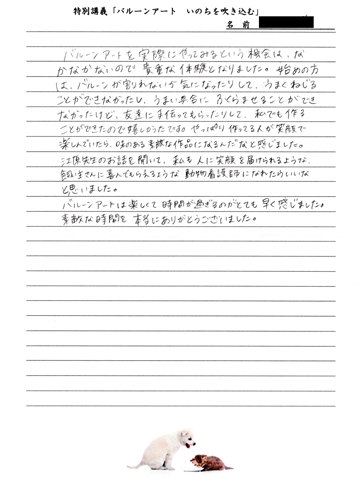 特別講義「バルーンアート　いのちを吹き込む」
名 前
バルーンアートを実際にやってみるという機会は、な
かなかないので貴重な体験となりました。始めの方
は、バルーンが割れないか気になったりして、うまくねじる
ことができなかったし、うまい具合にふくらませることができ
なかったけど、友達に手伝ってもらったりして、私でも作る
ことができたので嬉しかったです。やっぱり作ってる人が笑顔で
楽しんでいたら、味のある素敵な作品になるんだなと感じました。
江原先生のお話を聞いて、私も人に笑顔を届けられるような、
飼い主さんに喜んでもらえるような動物看護師になれたらいいな
と思いました。
バルーンアートは楽しくて時間が過ぎるのがとても早く感じました。
素敵な時間を本当にありがとうございました。